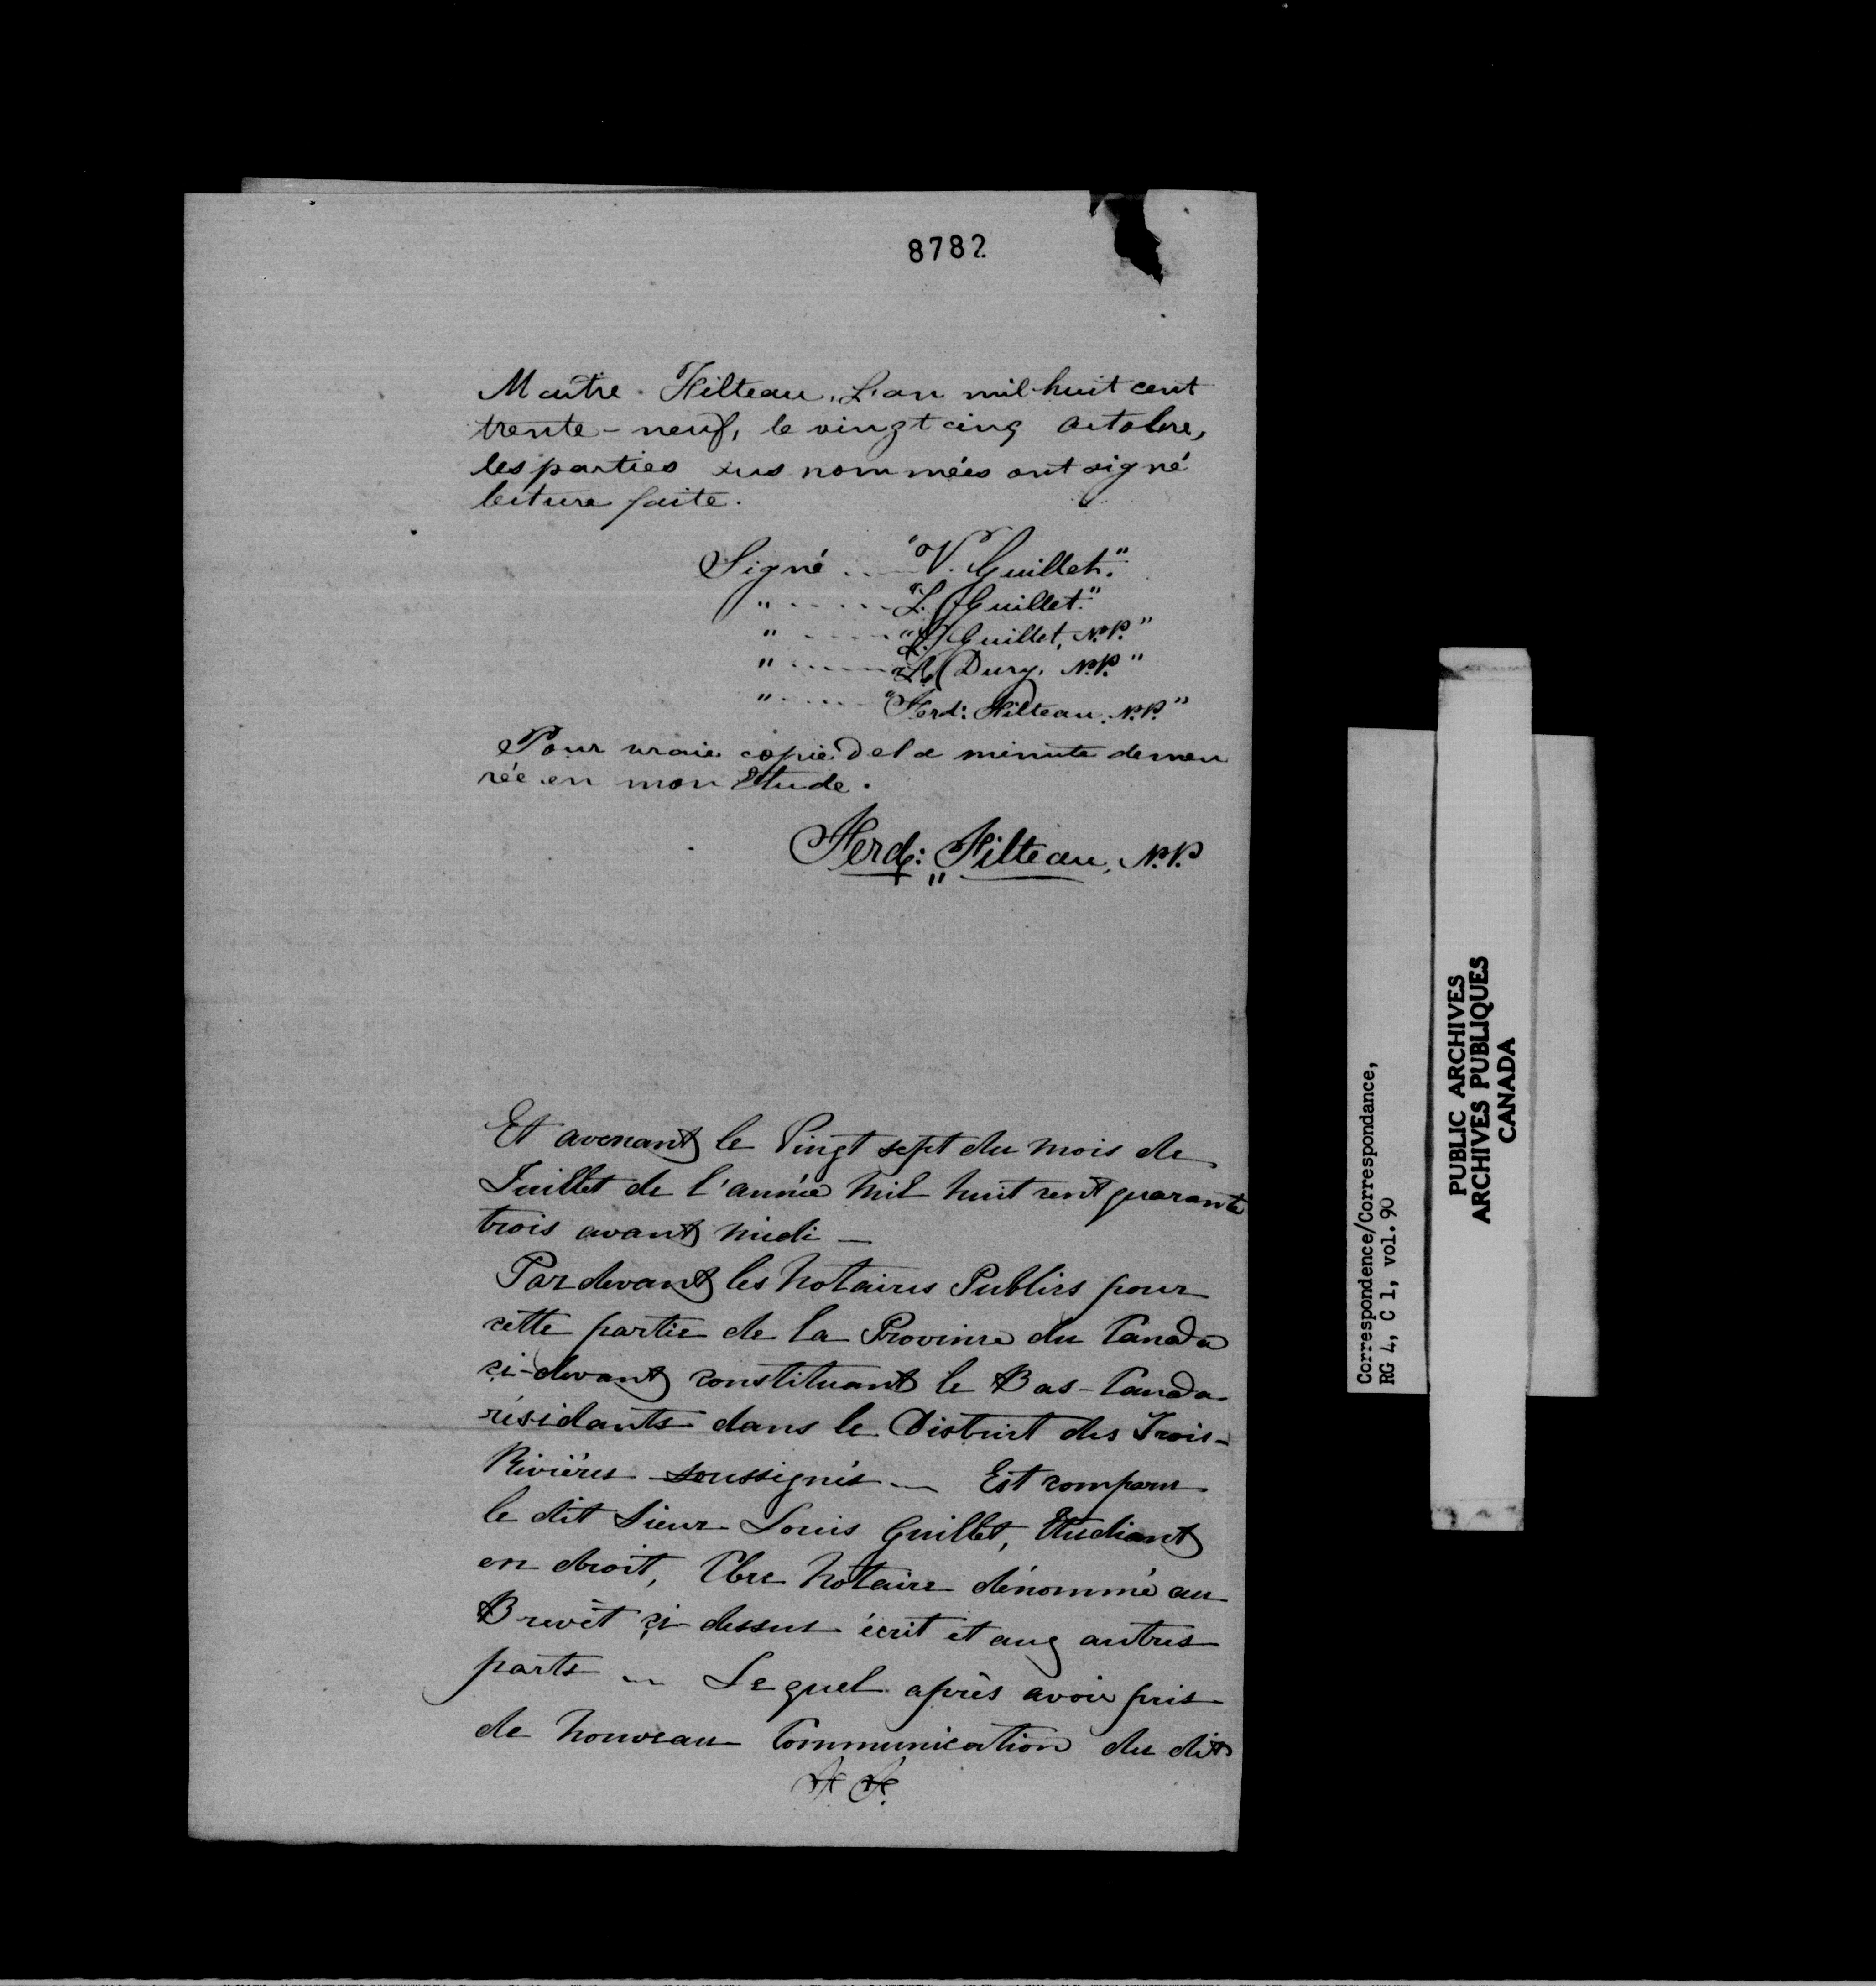 8782
Maître Filteau, L'an mil huit cent
trente-neuf, le vingt cinq Octobre,
les parties sus nommées ont signé
lecture faite.
Signé .... "V. Guillet."
" ..... "L. Guillet."
" ..... "L. Guillet, N.P."
" ..... "L. Dury, N.P."
" ..... "Ferd: Filteau, N.P."
Pour vraie copie de la minute demeu
rée en mon Etude.
Ferd: Filteau, N.P.
Et avenant le Vingt sept du mois de
Juillet de l'année mil huit cent quarante
trois avant midi —
Par devant les Notaires Publics pour
cette partie de la Province du Canada
ci-devant constituant le Bas-Canada
résidants dans le District des Trois-
Rivières soussignés — Est comparu
le dit Sieur Louis Guillet, Etudiant
en droit, Clerc Notaire dénommé au
Brevêt ci dessus écrit et aux autres
parts — Lequel après avoir pris
de nouveau Communication du dit
Correspondence/Correspondance,
RG 4, C 1, vol. 90
PUBLIC ARCHIVES
ARCHIVES PUBLIQUES
CANADA